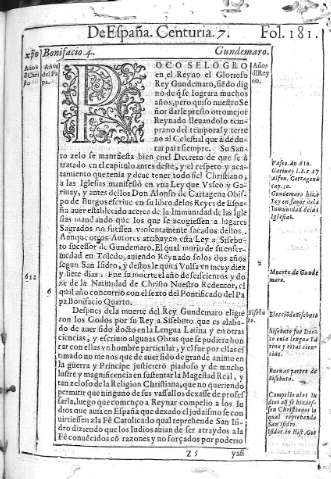 De España. Centuria. 7. Fol. 181.
Bonifacio 4. Gundemaro.
POCO SE LOGRO
en el Reyno el Glorioso
Rey Gundemaro, siẽdo dig
no de q̃ se lograra muchos
años, pero quiso nuestro Se
ñor darle presto otro mejor
Reynado lleuandolo tem
prano del temporal y terre
no al Celestial que à de du-
rar para siempre. Su San-
to zelo se manifiesta bien en el Decreto de que se à
tratado en el capitulo antes deste, y el respeto y aca-
tamiento que tenia y deue tener todo fiel Christiano,
a las Iglesias manifestò en vna Ley que
y antes dellos Don Alonso de Cartagena Obis
po de Burgos escriue en su libro de los Reyes de España
auer establecido acerca de la Immunidad de las Igle
sias mandando que los que se acogiessen a lugares
Sagrados no fuessen violentamente sacados dellos.
Aunque otros Autores atribuyen esta Ley a Sisebu-
to sucessor de Gundemaro. El qual murio de su enfer-
medad en Toledo, auiendo Reynado solos dos años
segun San Isidro, y
y siete dias. Fue su muerte el año de seiscientos y do
ze de la Natiuidad de Christo Nuestro Redentor, el
qual año concurrio con el sexto del Pontificado del Pa
pa Bonifacio Quarto.
612
6
2
Despues de la muerte del Rey Gundemaro eligie
ron los Godos por su Rey a Sisebuto que es alaba-
do de auer sido docto en la Lengua Latina y en otras
ciencias, y escriuio algunas Obras que se pudiera hon
rar con ellas vn hombre particular, y el fue por ellas es
timado no menos que de auer sido de grande animo en
la guerra y Principe justiciero piadoso y de mucho
lustre y magnificencia en sustentar la Magestad Real, y
tan zeloso de la Religion Christiana, que no queriendo
permitir que ninguno de sus vassallos dexasse de profes-
sarla, luego que començo a Reynar compelio a los Iu
dios que auia en España que dexado el judaismo se con
uirtiessen a la Fé Catolica lo qual reprehende San Isi-
dro diziendo que los Iudios auian de ser atraydos a la
Fé conuẽcidos cõ razones y no forçados por poderio
Z 5
Immunidad de las
Iglesias.
Muerte de Gunde
maro.
Eleccion de Sisebuto
Sisebuto fue Doc-
to en la lengua La
tina y otras cien-
cias.
Buenas partes de
Sisebuto.